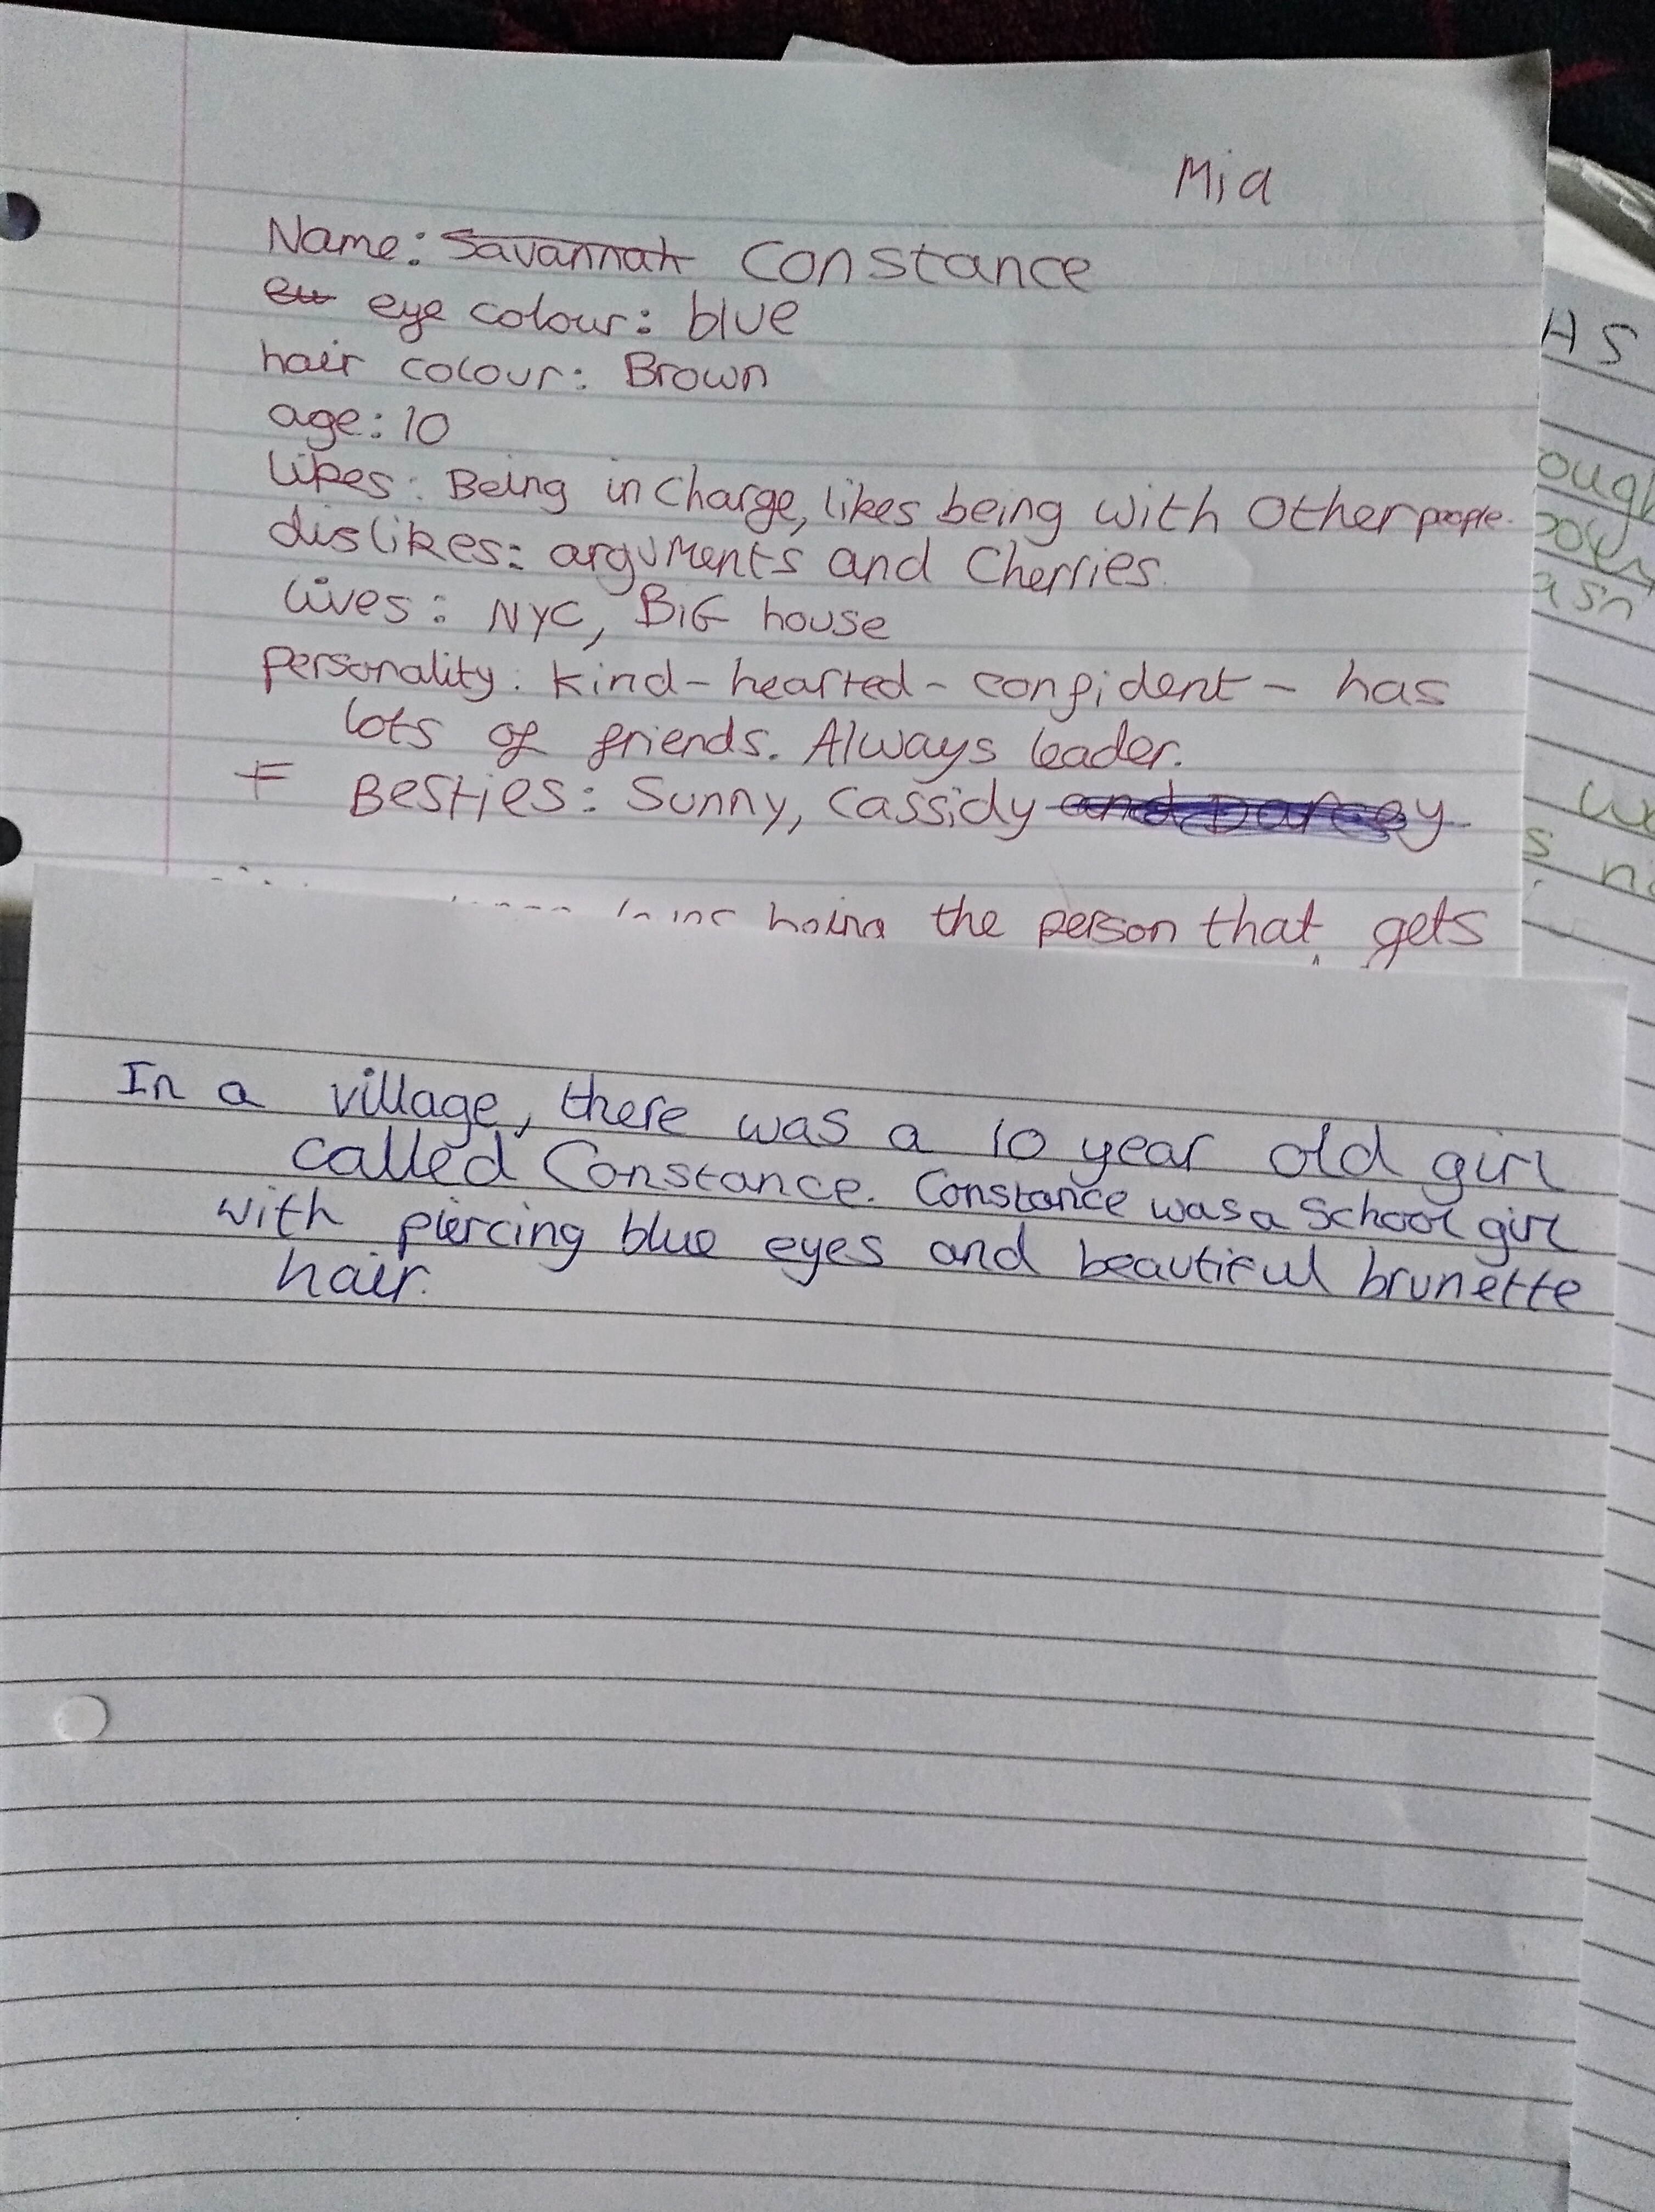 Mia
Name: Savannah Constance
eye colour: blue
hair colour: Brown
age: 10
likes: Being in charge, likes being with other people.
dislikes: arguments and Cherries.
lives: NYC, BIG house
Personality: kind-hearted - confident - has
lots of friends. Always leader.
F Besties: Sunny, Cassidy and Darcey
being the person that gets
In a village, there was a 10 year old girl
called Constance. Constance was a School girl
with piercing blue eyes and beautiful brunette
hair.
HS